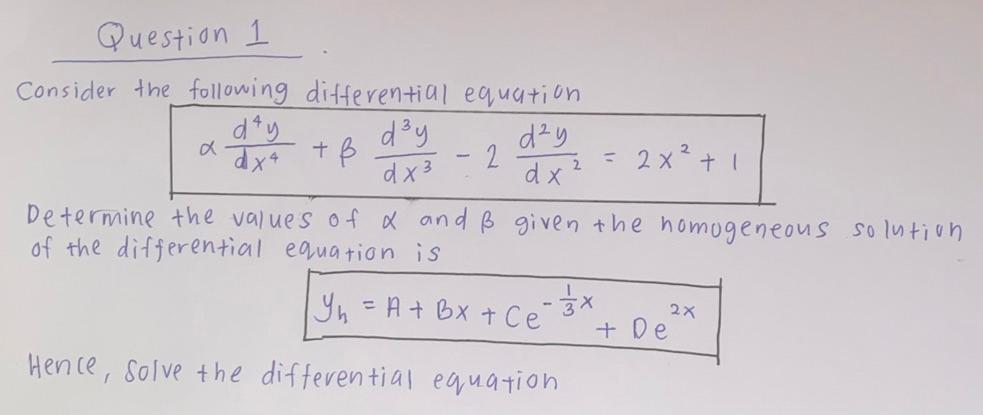 Question 1
Consider the following differential equation
α d⁴y/dx⁴ + β d³y/dx³ - 2 d²y/dx² = 2x² + 1
Determine the values of α and β given the homogeneous solution
of the differential equation is
yₕ = A + Bx + Ce^(-1/3 x) + De^(2x)
Hence, solve the differential equation